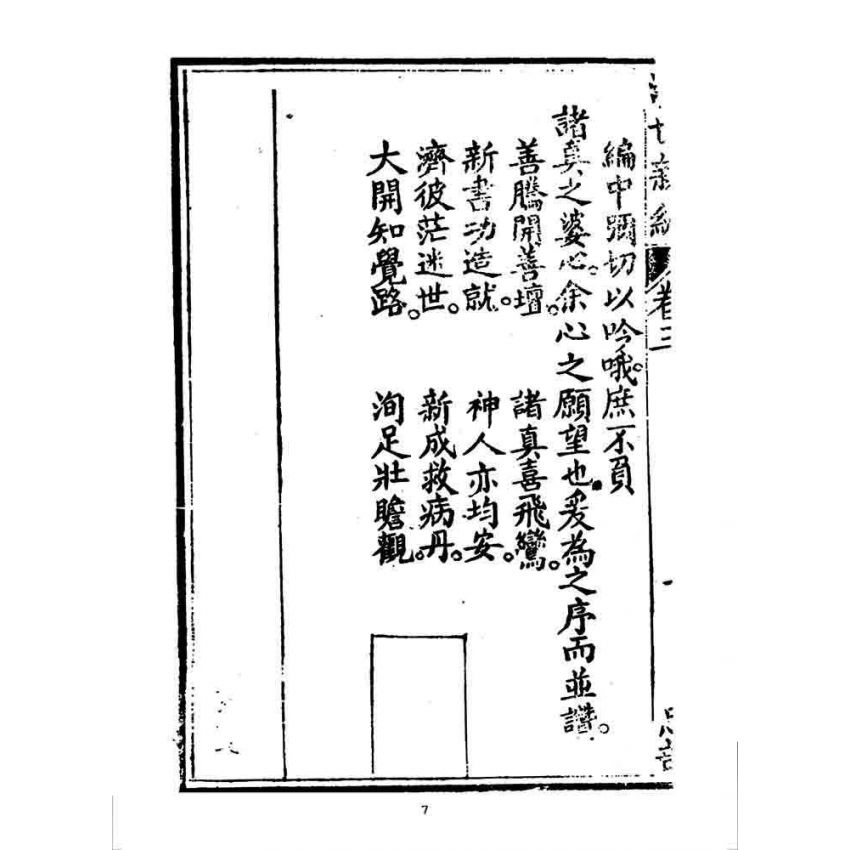 卷三
編中彌切以吟哦。庶不負
諸眞之婆心。余心之願望也。爰為之序而並讚。
善騰開善壇。諸真喜飛鸞。
新書功造就。神人亦均安。
濟彼茫迷世。新成救病丹。
大開知覺路。洵足壯瞻觀。
7